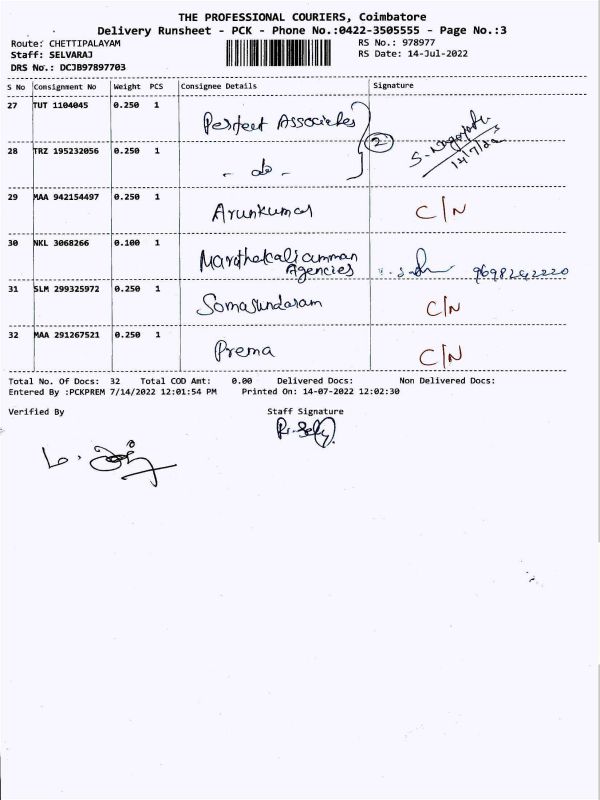 THE PROFESSIONAL COURIERS, Coimbatore
Delivery Runsheet - PCK - Phone No.:0422-3505555 - Page No.:3
Route: CHETTIPALAYAM RS No.: 978977
Staff: SELVARAJ RS Date: 14-Jul-2022
DRS No.: DCJB97897703
S No Consignment No Weight PCS Consignee Details Signature
27 TUT 1104045 0.250 1 Perfect Associates
2
14/7/22
28 TRZ 195232056 0.250 1 - do -
29 MAA 942154497 0.250 1 Arunkumar C/N
30 NKL 3068266 0.100 1
Agencies 9698242220
31 SLM 299325972 0.250 1 Somasundaram C/N
32 MAA 291267521 0.250 1 Prema C/N
Total No. Of Docs: 32 Total COD Amt: 0.00 Delivered Docs: Non Delivered Docs:
Entered By :PCKPREM 7/14/2022 12:01:54 PM Printed On: 14-07-2022 12:02:30
Verified By Staff Signature